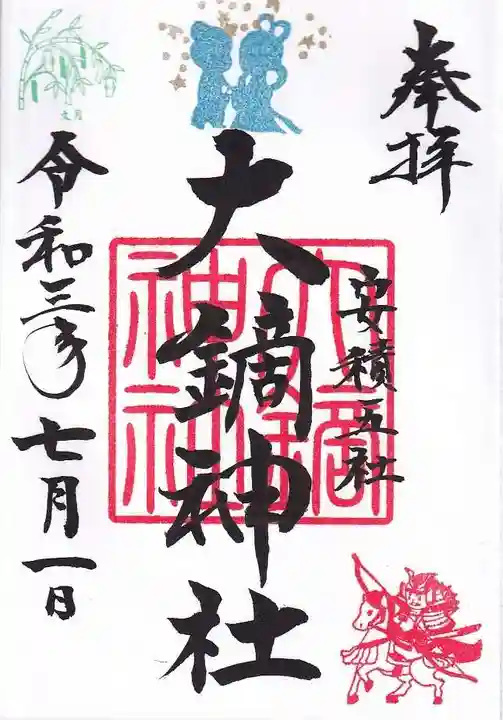 奉拝
安積五社
大鏑神社
大鏑神社
令和三年七月一日
文月